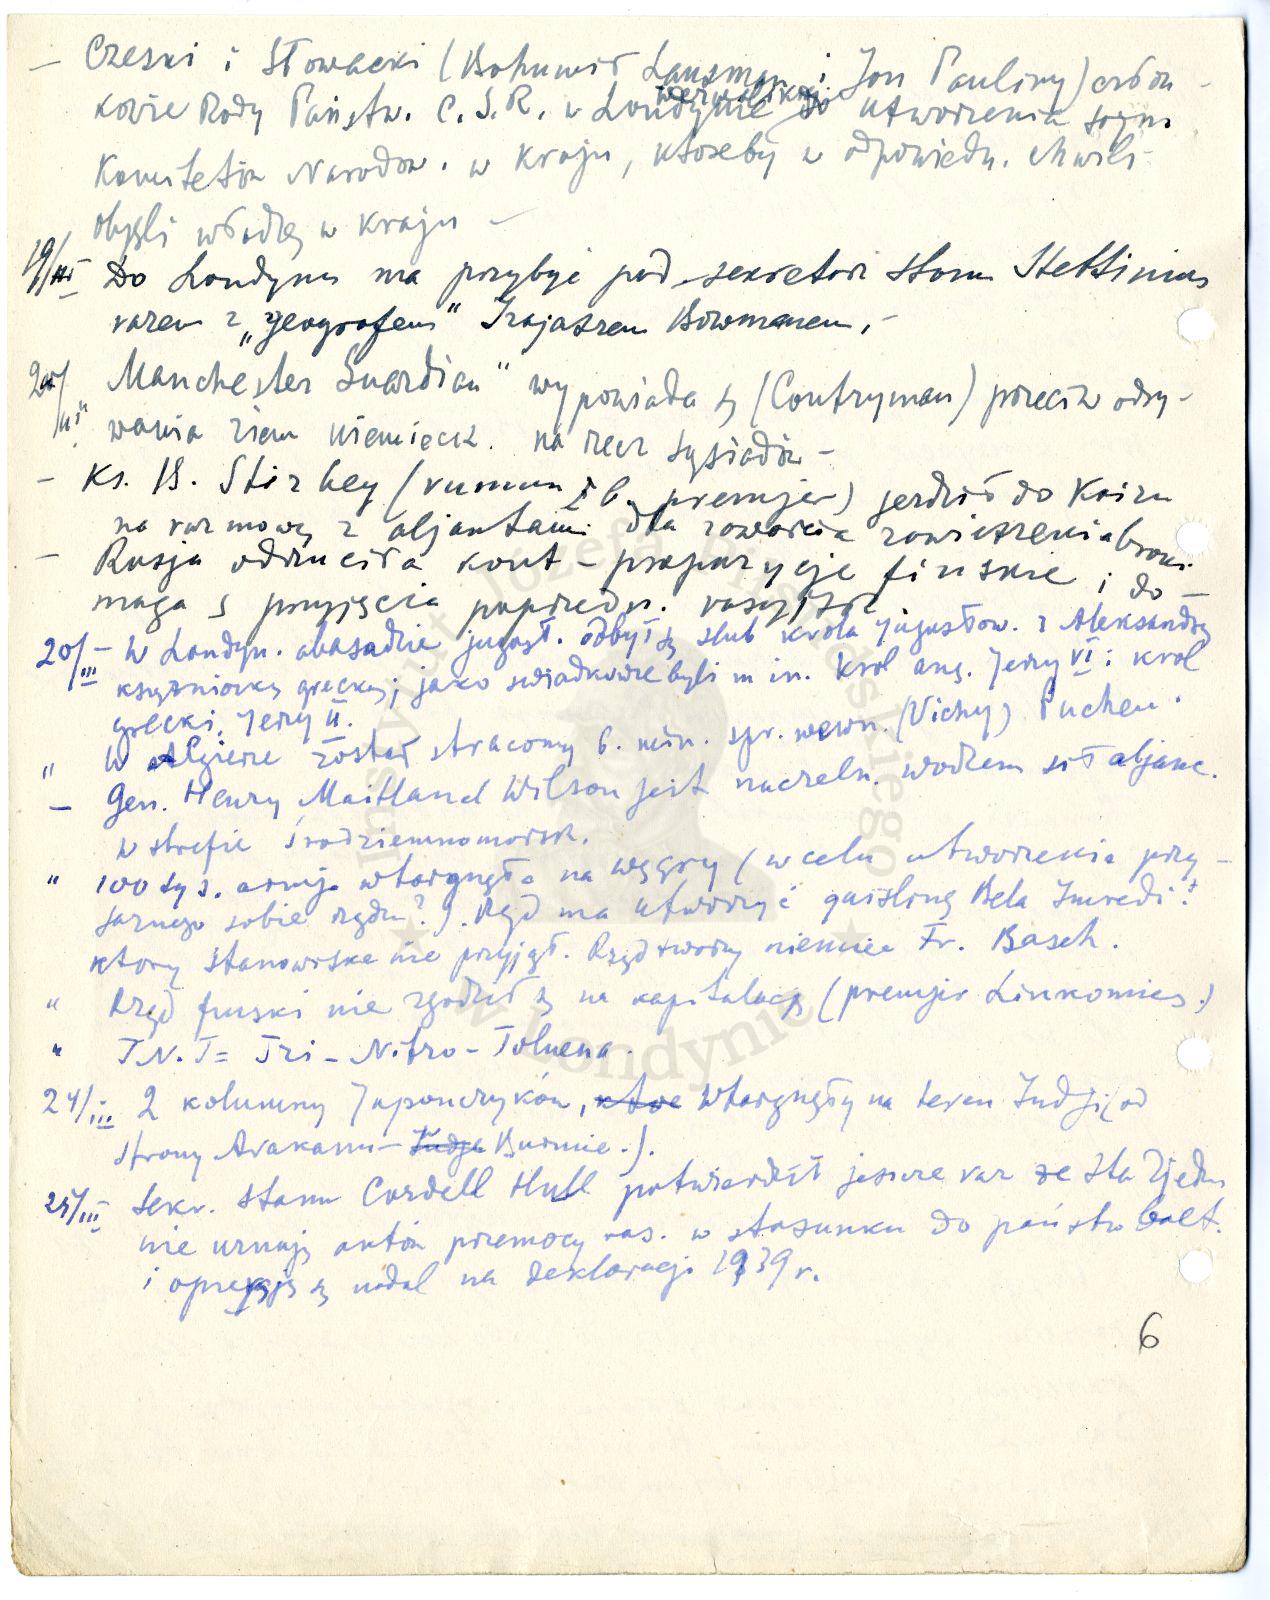 — Czeski i Słowacki (Bohumił Lausman i Jan Pauliny) człon-
kowie Rady Państw. C.S.R. w Londynie wezwali kraj do utworzenia tajn.
Komitetów Narodow. w kraju, któreby w odpowiedn. chwili
objęli władzę w kraju —
19/III Do Londynu ma przybyć pod-sekretarz stanu Stettinius
razem z „geografem" Izajaszem Bowmanem, -
20/III „Manchester Guardian" wypowiada się (Contryman) przeciw odry-
wania ziem niemieck. na rzecz sąsiadów —
— Ks. B. Stirbey (rumun b. premjer) jeździł do Kairu
na rozmowę z aljantami dla zawarcia zawieszenia broni.
— Rusja odrzuciła kont-propozycje fińskie i do-
maga się przyjęcia poprzedn. rosyjsk.
20/III — W Londyn. abasadzie jugosł. odbył się ślub króla jugosłow. z Aleksandrą
księżniczką grecką; jako świadkowie byli m in. król ang. Jerzy VI i król
grecki Jerzy II.
" W Algierze został stracony b. min. spr. wewn. (Vichy) Pucheu.
— Gen. Henry Maitland Wilson jest naczeln. wodzem sił aljanc.
w strefie śródziemnomorsk.
" 100 tys. armja wtargnęła na węgry (w celu utworzenia przy-
jaznego sobie rządu?). Rząd ma utworzyć quisling Bela Imredi?
który stanowiska nie przyjął. Rząd tworzy niemiec Fr. Basch.
" Rząd fiński nie zgodził się na kapitulację (premjer Linkomies.)
" T.N.T = Tri-Nitro-Toluena.
24/III 2 kolumny Japończyków, wtargnęły na teren Indji (od
strony Arakanu — Burmie.).
25/III Sekr. stanu Cordell Hull potwierdził jeszcze raz że Sta Zjedn
nie uznają aktów przemocy ros. w stosunku do państw bałt.
i opierają się nadal na deklaracji 1939 r.
6
Instytut Józefa Piłsudskiego
w Londynie